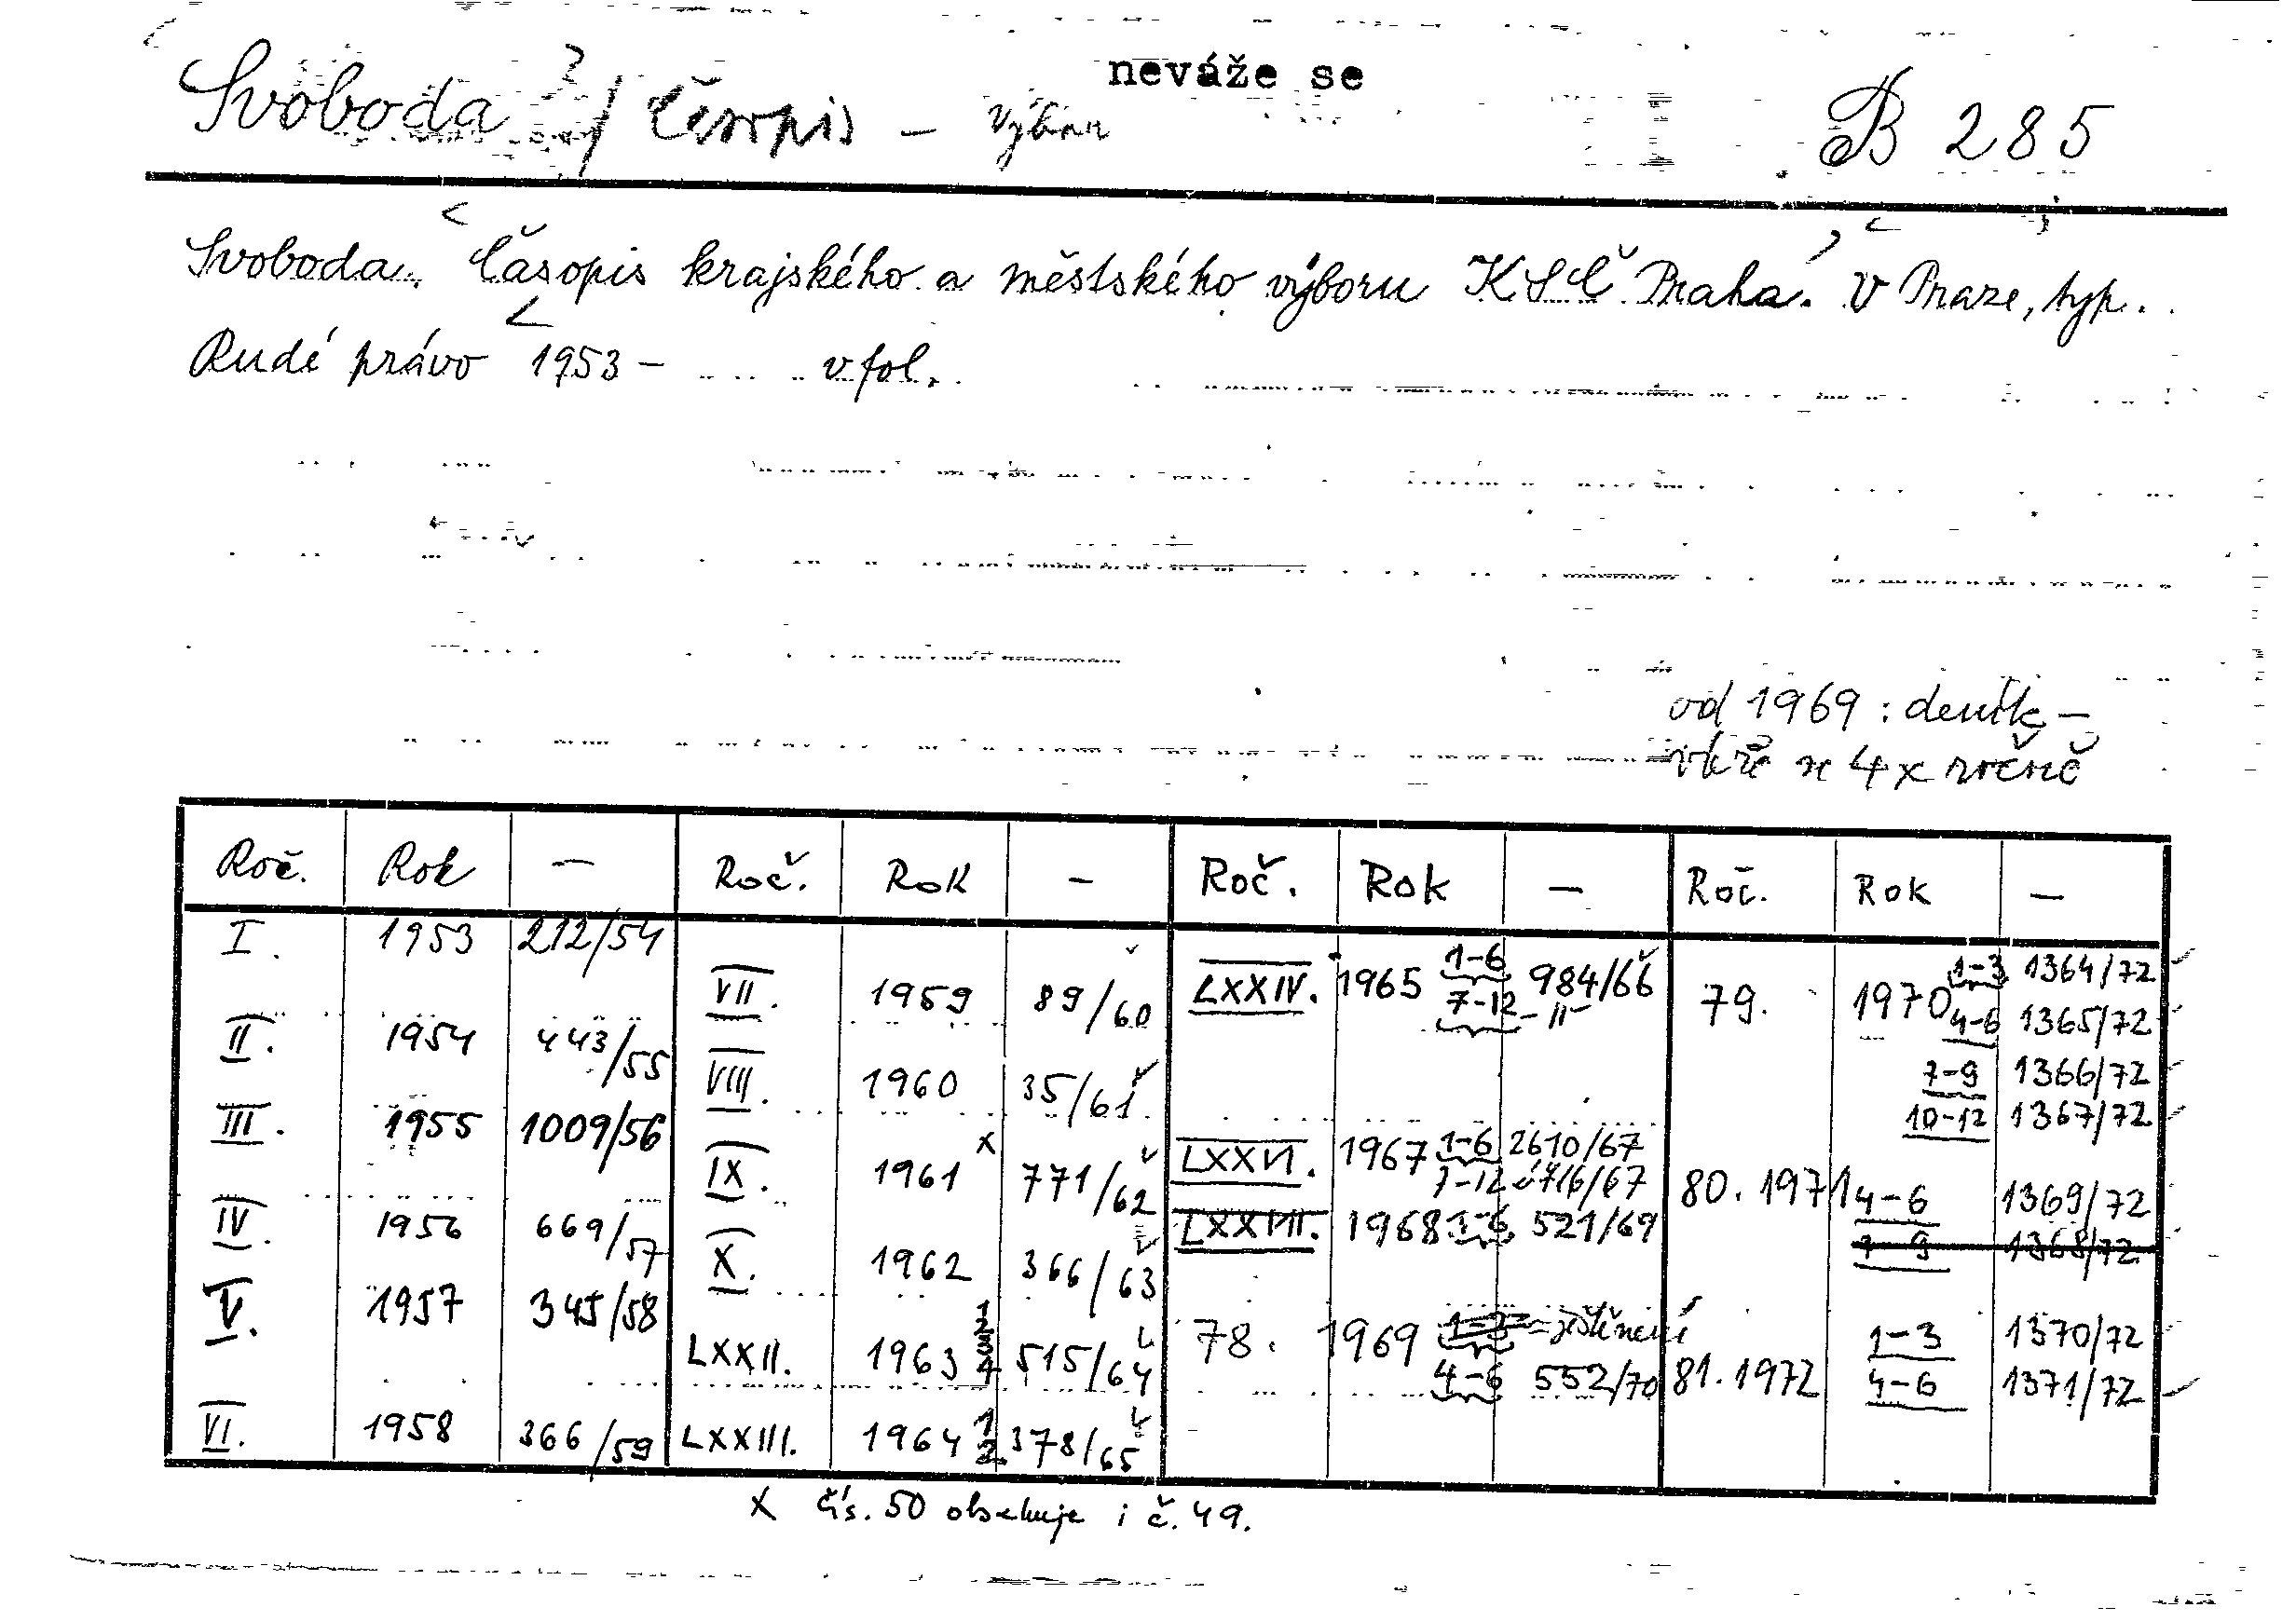 neváže se
Svoboda / Časopis – výboru B 285
Svoboda. Časopis krajského a městského výboru KSČ Praha. V Praze, typ.
Rudé právo 1953 – v fol.
od 1969: deník –
váže se 4x ročně
Roč. Rok – Roč. Rok – Roč. Rok – Roč. Rok –
I. 1953 212/54
II. 1954 443/55
III. 1955 1009/56
IV. 1956 669/57
V. 1957 345/58
VI. 1958 366/59
VII. 1959 89/60
VIII. 1960 35/61
IX. 1961 x 771/62
X. 1962 366/63
LXXII. 1963 1 2 3 4 515/64
LXXIII. 1964 1 2. 378/65
LXXIV. 1965 1-6 984/66
7-12 -II-
LXXVI. 1967 1-6 2610/67
7-12
LXXVIII. 1968 1-6 521/69
78. 1969 1-3 = zištěnení
4-6 552/70
79. 1970 1-3 1364/72
4-6 1365/72
7-9 1366/72
10-12 1367/72
80. 1971 4-6 1369/72
7-9 1368/72
81. 1972 1-3 1370/72
4-6 1371/72
x čís. 50 obsahuje i č. 49.